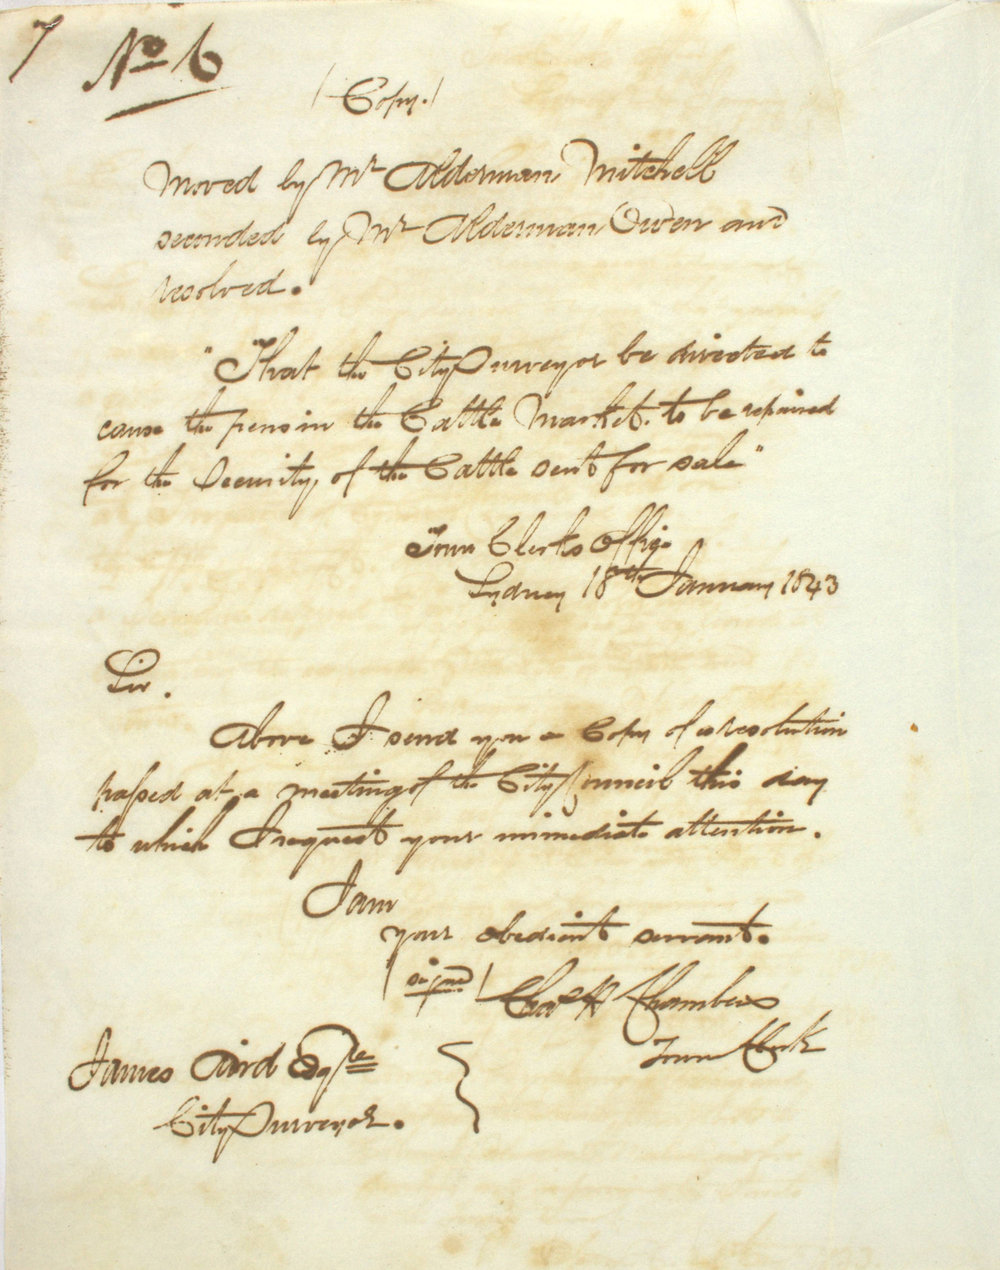 7
No 6
(Copy.)
Moved by Mr Alderman Mitchell
seconded by Mr Alderman Owen and
resolved.
"That the City Surveyor be directed to
cause the pens in the Cattle Market. to be repaired
for the Security, of the Cattle sent for sale"
Town Clerks Office
Sydney 18th January 1843
Sir.
Above I send you a Copy of a resolution
passed at a meeting of the City Council this day
to which I request your immediate attention.
I am
your obedient servant.
(signed) Chas H Chambers
Town Clerk
James Aird Esqre
City Surveyor.